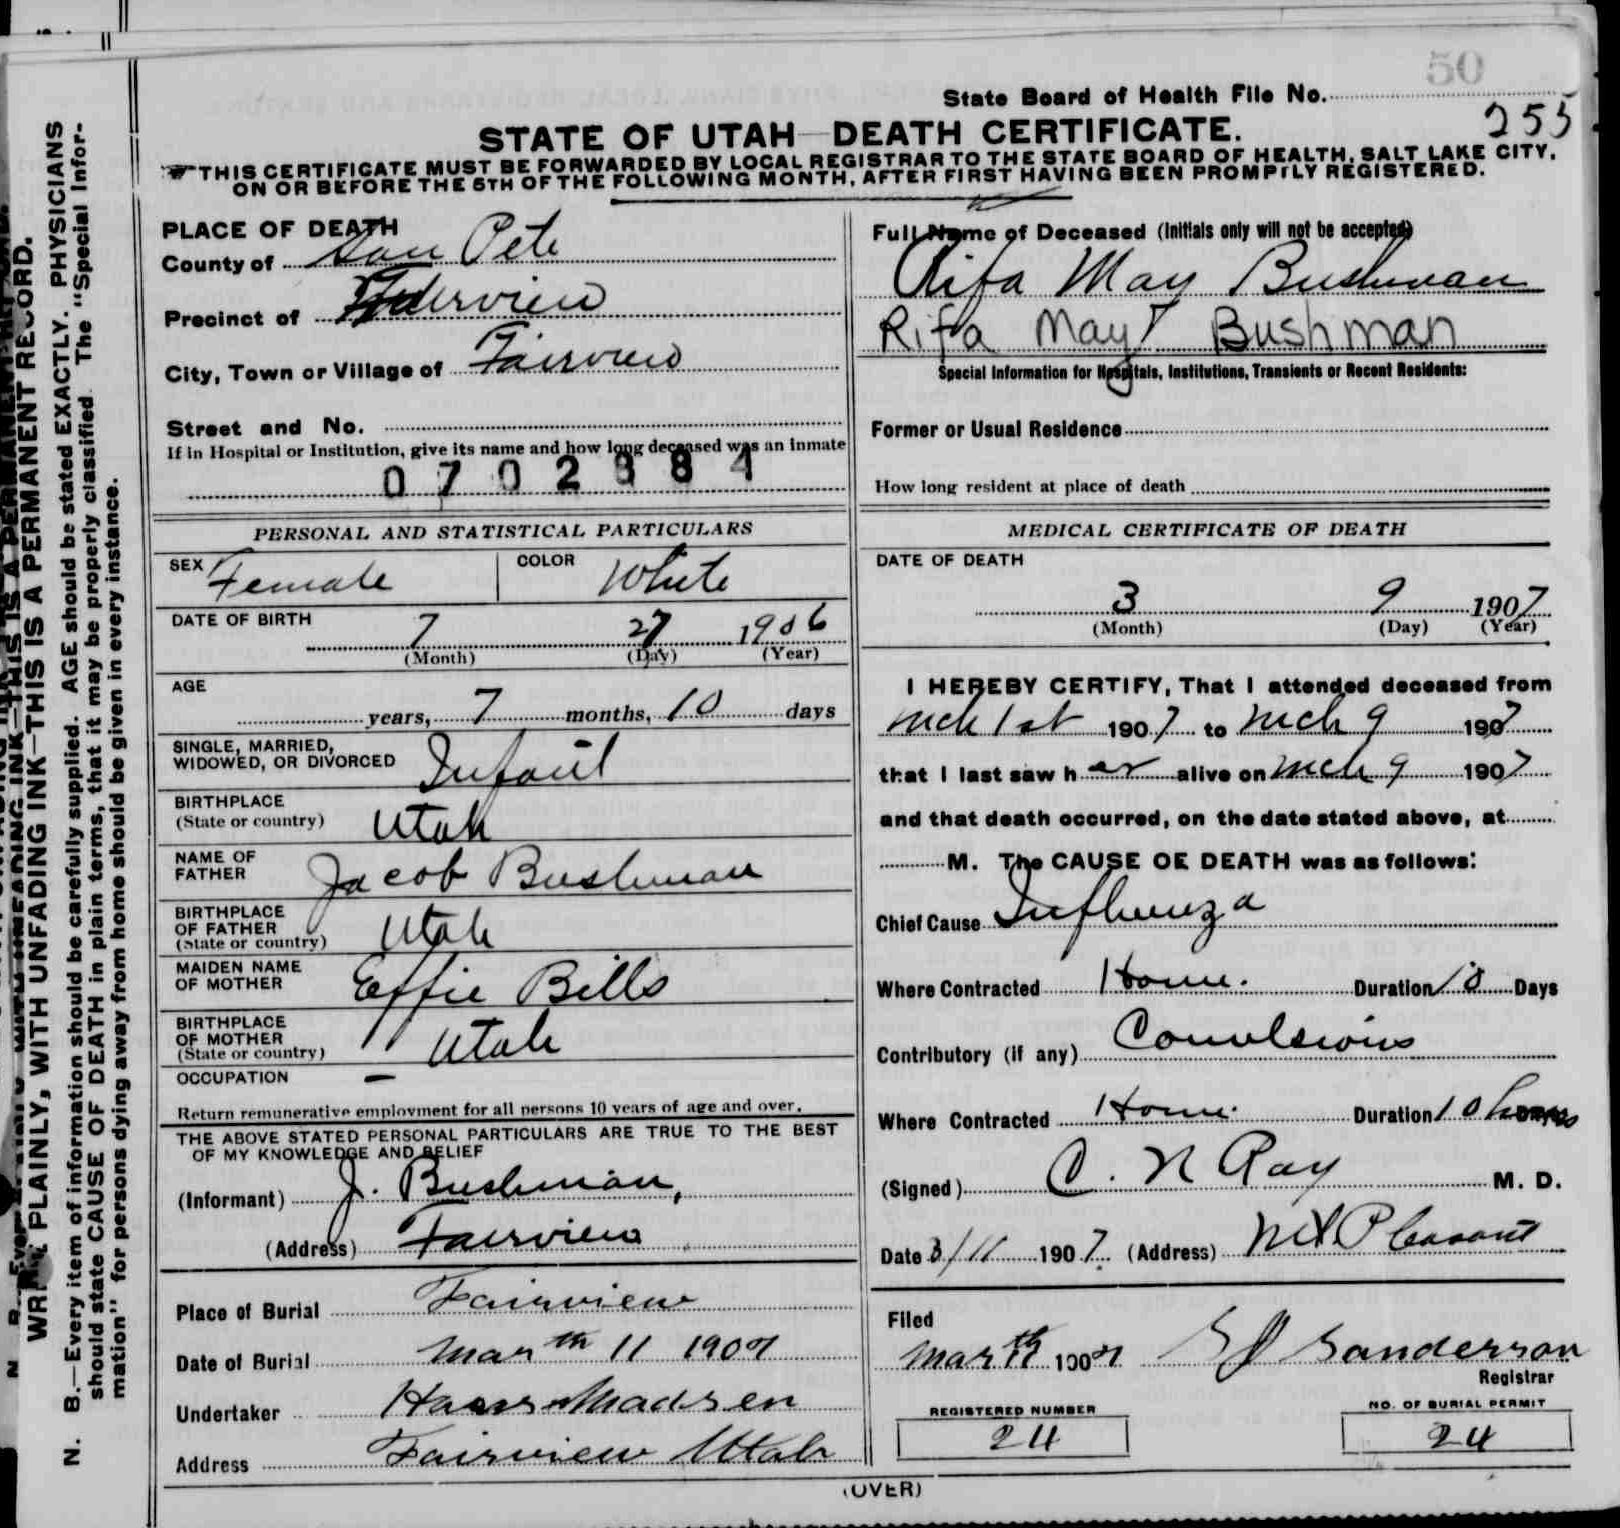 50
State Board of Health File No.
255
STATE OF UTAH—DEATH CERTIFICATE.
THIS CERTIFICATE MUST BE FORWARDED BY LOCAL REGISTRAR TO THE STATE BOARD OF HEALTH, SALT LAKE CITY,
ON OR BEFORE THE 5TH OF THE FOLLOWING MONTH, AFTER FIRST HAVING BEEN PROMPTLY REGISTERED.
PLACE OF DEATH
County of San Pete
Precinct of Fairview
City, Town or Village of Fairview
Street and No.
If in Hospital or Institution, give its name and how long deceased was an inmate
0702884
Full Name of Deceased (Initials only will not be accepted)
Rifa May Bushman
Rifa May Bushman
Special Information for Hospitals, Institutions, Transients or Recent Residents:
Former or Usual Residence
How long resident at place of death
PERSONAL AND STATISTICAL PARTICULARS
SEX Female COLOR White
DATE OF BIRTH 7 27 1906
(Month) (Day) (Year)
AGE
years, 7 months, 10 days
SINGLE, MARRIED,
WIDOWED, OR DIVORCED Infant
BIRTHPLACE
(State or country) Utah
NAME OF
FATHER Jacob Bushman
BIRTHPLACE
OF FATHER
(State or country) Utah
MAIDEN NAME
OF MOTHER Effie Bills
BIRTHPLACE
OF MOTHER
(State or country) Utah
OCCUPATION –
Return remunerative employment for all persons 10 years of age and over.
THE ABOVE STATED PERSONAL PARTICULARS ARE TRUE TO THE BEST
OF MY KNOWLEDGE AND BELIEF
(Informant) J. Bushman,
(Address) Fairview
Place of Burial Fairview
Date of Burial Mar th 11 1907
Undertaker Madsen
Address Fairview Utah
MEDICAL CERTIFICATE OF DEATH
DATE OF DEATH
3 9 1907
(Month) (Day) (Year)
I HEREBY CERTIFY, That I attended deceased from
Mch 1st 1907 to Mch 9 1907
that I last saw her alive on Mch 9 1907
and that death occurred, on the date stated above, at
M. The CAUSE OF DEATH was as follows:
Chief Cause Influenza
Where Contracted Home. Duration 10 Days
Contributory (if any) Convulsions
Where Contracted Home. Duration 10 hours
(Signed) C. N Ray M. D.
Date 3/11 1907. (Address) Mt Pleasant
Filed
Mar 1907 Sanderson
Registrar
REGISTERED NUMBER
24
NO. OF BURIAL PERMIT
24
(OVER)
WRITE PLAINLY, WITH UNFADING INK—THIS IS A PERMANENT RECORD.
N. B.—Every item of information should be carefully supplied. AGE should be stated EXACTLY. PHYSICIANS
should state CAUSE OF DEATH in plain terms, that it may be properly classified. The "Special Infor-
mation" for persons dying away from home should be given in every instance.